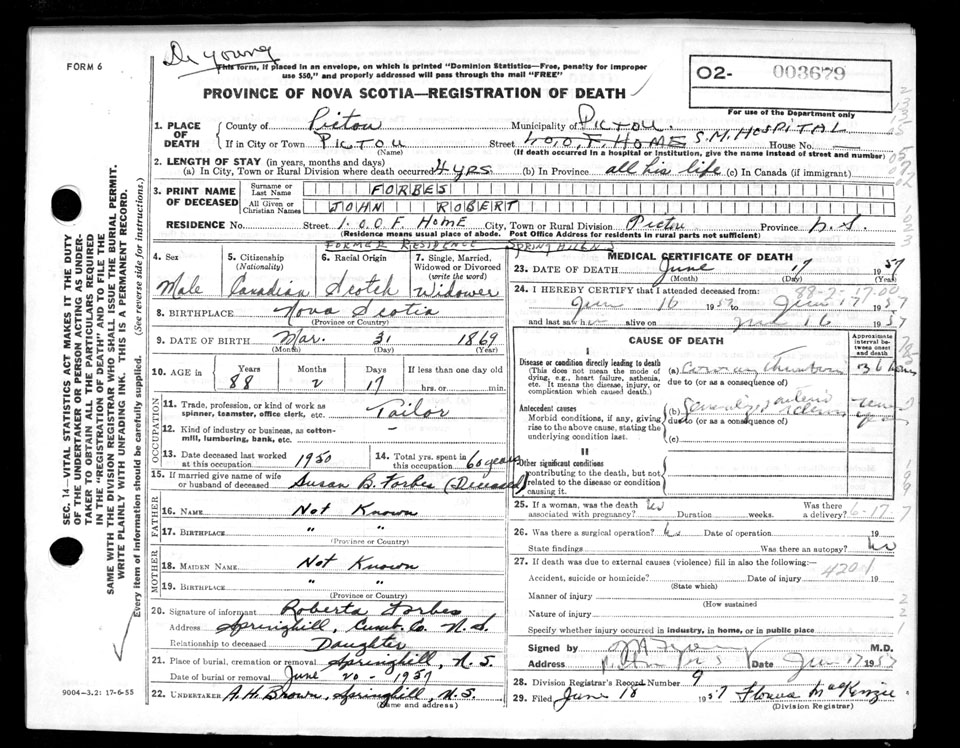 De Young
FORM 6
This form, if placed in an envelope, on which is printed "Dominion Statistics—Free, penalty for improper
use $50," and properly addressed will pass through the mail "FREE"
02- 003679
PROVINCE OF NOVA SCOTIA—REGISTRATION OF DEATH
For use of the Department only
1. PLACE OF DEATH
County of Pictou Municipality of PICTOU
If in City or Town PICTOU Street I.O.O.F. HOME S.M. HOSPITAL House No. —
(Name) (If death occurred in a hospital or institution, give the name instead of street and number)
2. LENGTH OF STAY (in years, months and days)
(a) In City, Town or Rural Division where death occurred 4 yrs (b) In Province all his life (c) In Canada (if immigrant)
3. PRINT NAME OF DECEASED
Surname or Last Name FORBES
All Given or Christian Names JOHN ROBERT
RESIDENCE No. Street I.O.O.F. HOME City, Town or Rural Division Pictou Province N.S.
(Residence means usual place of abode. Post Office Address for residents in rural parts not sufficient)
FORMER RESIDENCE SPRINGHILL N.S.
4. Sex
Male
5. Citizenship
(Nationality)
Canadian
6. Racial Origin
Scotch
7. Single, Married,
Widowed or Divorced
(write the word)
Widower
8. BIRTHPLACE Nova Scotia
(Province or Country)
9. DATE OF BIRTH Mar. 31 1869
(Month) (Day) (Year)
10. AGE in Years Months Days If less than one day old
88 2 17 hrs. or min.
OCCUPATION
11. Trade, profession, or kind of work as
spinner, teamster, office clerk, etc. Tailor
12. Kind of industry or business, as cotton-
mill, lumbering, bank, etc. —
13. Date deceased last worked
at this occupation 1950
14. Total yrs. spent in
this occupation 60 years
15. If married give name of wife
or husband of deceased Susan B. Forbes (Deceased)
FATHER
16. NAME Not Known
17. BIRTHPLACE " "
(Province or Country)
MOTHER
18. MAIDEN NAME Not Known
19. BIRTHPLACE " "
(Province or Country)
20. Signature of informant Roberta Forbes
Address Springhill, Cumb. Co. N.S.
Relationship to deceased Daughter
21. Place of burial, cremation or removal Springhill, N.S.
Date of burial or removal June 20 - 1957
22. UNDERTAKER A.H. Brown, Springhill, N.S.
(Name and address)
9004—3.2: 17-6-55
MEDICAL CERTIFICATE OF DEATH
23. DATE OF DEATH June 17 1957
(Month) (Day)
88-2-17-00
24. I HEREBY CERTIFY that I attended deceased from:
June 16 1957 to June 17 1957
and last saw him alive on June 16 1957
CAUSE OF DEATH
Approximate
interval be-
tween onset
and death
I
Disease or condition directly leading to death
(This does not mean the mode of
dying, e.g., heart failure, asthenia,
etc. It means the disease, injury, or
complication which caused death.)
(a) Coronary Thrombosis 36 hours
due to (or as a consequence of)
Antecedent causes
Morbid conditions, if any, giving
rise to the above cause, stating the
underlying condition last.
(b)
due to (or as a consequence of)
(c)
II
Other significant conditions
contributing to the death, but not
related to the disease or condition
causing it.
25. If a woman, was the death
associated with pregnancy? No Duration weeks. Was there
a delivery?
6-17-7
26. Was there a surgical operation? No Date of operation 19
State findings Was there an autopsy? No
27. If death was due to external causes (violence) fill in also the following:—
4201
Accident, suicide or homicide? Date of injury 19
(State which)
Manner of injury
(How sustained
Nature of injury
Specify whether injury occurred in industry, in home, or in public place
Signed by M.D.
Address Date June 17 1957
28. Division Registrar's Record Number 9
29. Filed June 18 1957 Florence MacKenzie
(Division Registrar)
SEC. 14—VITAL STATISTICS ACT MAKES IT THE DUTY
OF THE UNDERTAKER OR PERSON ACTING AS UNDER-
TAKER TO OBTAIN ALL THE PARTICULARS REQUIRED
IN THE "REGISTRATION OF DEATH" AND TO FILE THE
SAME WITH THE DIVISION REGISTRAR WHO SHALL ISSUE THE BURIAL PERMIT.
WRITE PLAINLY WITH UNFADING INK. THIS IS A PERMANENT RECORD.
Every item of information should be carefully supplied. (See reverse side for instructions.)